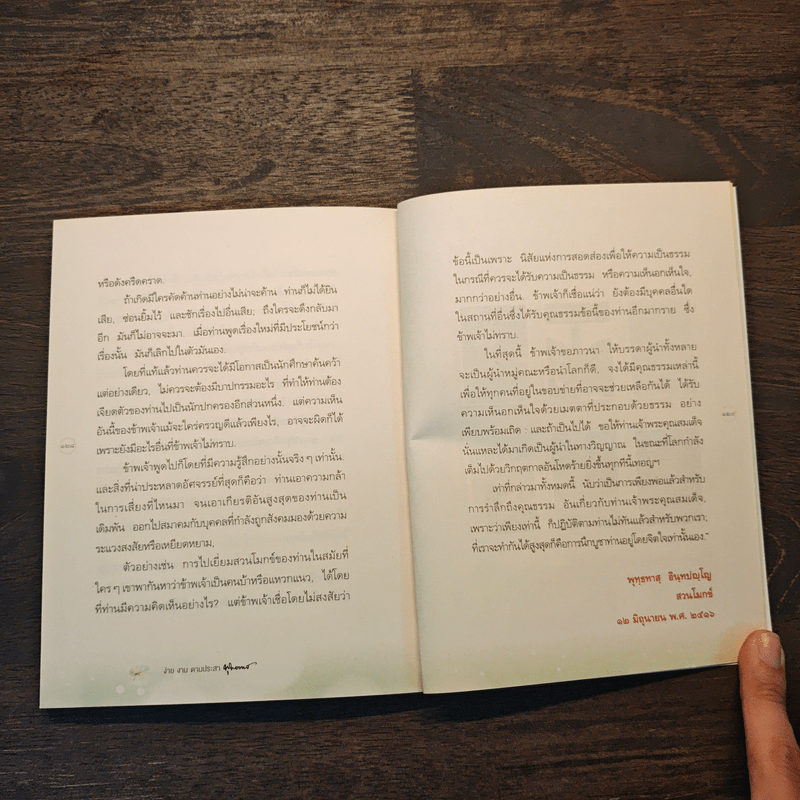 หรือดังครืดคราด.
ถ้าเกิดมีใครคัดค้านท่านอย่างไม่น่าจะค้าน ท่านก็ไม่ได้ยิน
เสีย, ซ่อนยิ้มไว้ และชักเรื่องไปอื่นเสีย; ถึงใครจะดึงกลับมา
อีก มันก็ไม่อาจจะมา. เมื่อท่านพูดเรื่องใหม่ที่มีประโยชน์กว่า
เรื่องนั้น มันก็เลิกไปในตัวมันเอง.
โดยที่แท้แล้วท่านควรจะได้มีโอกาสเป็นนักศึกษาค้นคว้า
แต่อย่างเดียว, ไม่ควรจะต้องมีบาปกรรมอะไร ที่ทำให้ท่านต้อง
เจียดตัวของท่านไปเป็นนักปกครองอีกส่วนหนึ่ง. แต่ความเห็น
อันนี้ของข้าพเจ้าแม้จะใคร่ครวญดีแล้วเพียงไร, อาจจะผิดก็ได้
เพราะยังมีอะไรอื่นที่ข้าพเจ้าไม่ทราบ.
ข้าพเจ้าพูดไปก็โดยที่มีความรู้สึกอย่างนั้นจริง ๆ เท่านั้น;
และสิ่งที่น่าประหลาดอัศจรรย์ที่สุดก็คือว่า ท่านเอาความกล้า
ในการเสี่ยงที่ไหนมา จนเอาเกียรติอันสูงสุดของท่านเป็น
เดิมพัน ออกไปสมาคมกับบุคคลที่กำลังถูกสังคมมองด้วยความ
ระแวงสงสัยหรือเหยียดหยาม,
ตัวอย่างเช่น การไปเยี่ยมสวนโมกข์ของท่านในสมัยที่
ใคร ๆ เขาพากันหาว่าข้าพเจ้าเป็นคนบ้าหรือแหวกแนว, ได้โดย
ที่ท่านมีความคิดเห็นอย่างไร? แต่ข้าพเจ้าเชื่อโดยไม่สงสัยว่า
ง่าย งาม ตามประสา
ข้อนี้เป็นเพราะ นิสัยแห่งการสอดส่องเพื่อให้ความเป็นธรรม
ในกรณีที่ควรจะได้รับความเป็นธรรม หรือความเห็นอกเห็นใจ,
มากกว่าอย่างอื่น. ข้าพเจ้าก็เชื่อแน่ว่า ยังต้องมีบุคคลอื่นใด
ในสถานที่อื่นซึ่งได้รับคุณธรรมข้อนี้ของท่านอีกมากราย ซึ่ง
ข้าพเจ้าไม่ทราบ.
ในที่สุดนี้ ข้าพเจ้าขอภาวนา ให้บรรดาผู้นำทั้งหลาย
จะเป็นผู้นำหมู่คณะหรือนำโลกก็ดี, จงได้มีคุณธรรมเหล่านี้
เพื่อให้ทุกคนที่อยู่ในขอบข่ายที่อาจจะช่วยเหลือกันได้ ได้รับ
ความเห็นอกเห็นใจด้วยเมตตาที่ประกอบด้วยธรรม อย่าง
เพียบพร้อมเถิด : และถ้าเป็นไปได้ ขอให้ท่านเจ้าพระคุณสมเด็จ
นั่นแหละได้มาเกิดเป็นผู้นำในทางวิญญาณ ในขณะที่โลกกำลัง
เต็มไปด้วยวิกฤตกาลอันโหดร้ายยิ่งขึ้นทุกทีนี้เทอญฯ
เท่าที่กล่าวมาทั้งหมดนี้ นับว่าเป็นการเพียงพอแล้วสำหรับ
การรำลึกถึงคุณธรรม อันเกี่ยวกับท่านเจ้าพระคุณสมเด็จ,
เพราะว่าเพียงเท่านี้ ก็ปฏิบัติตามท่านไม่ทันแล้วสำหรับพวกเรา;
ที่เราจะทำกันได้สูงสุดก็คือการนึกบูชาท่านอยู่โดยจิตใจเท่านั้นเอง."
พุทฺธทาสฺ อินฺทปญฺโญ
สวนโมกข์
๑๒ มิถุนายน พ.ศ. ๒๕๑๖